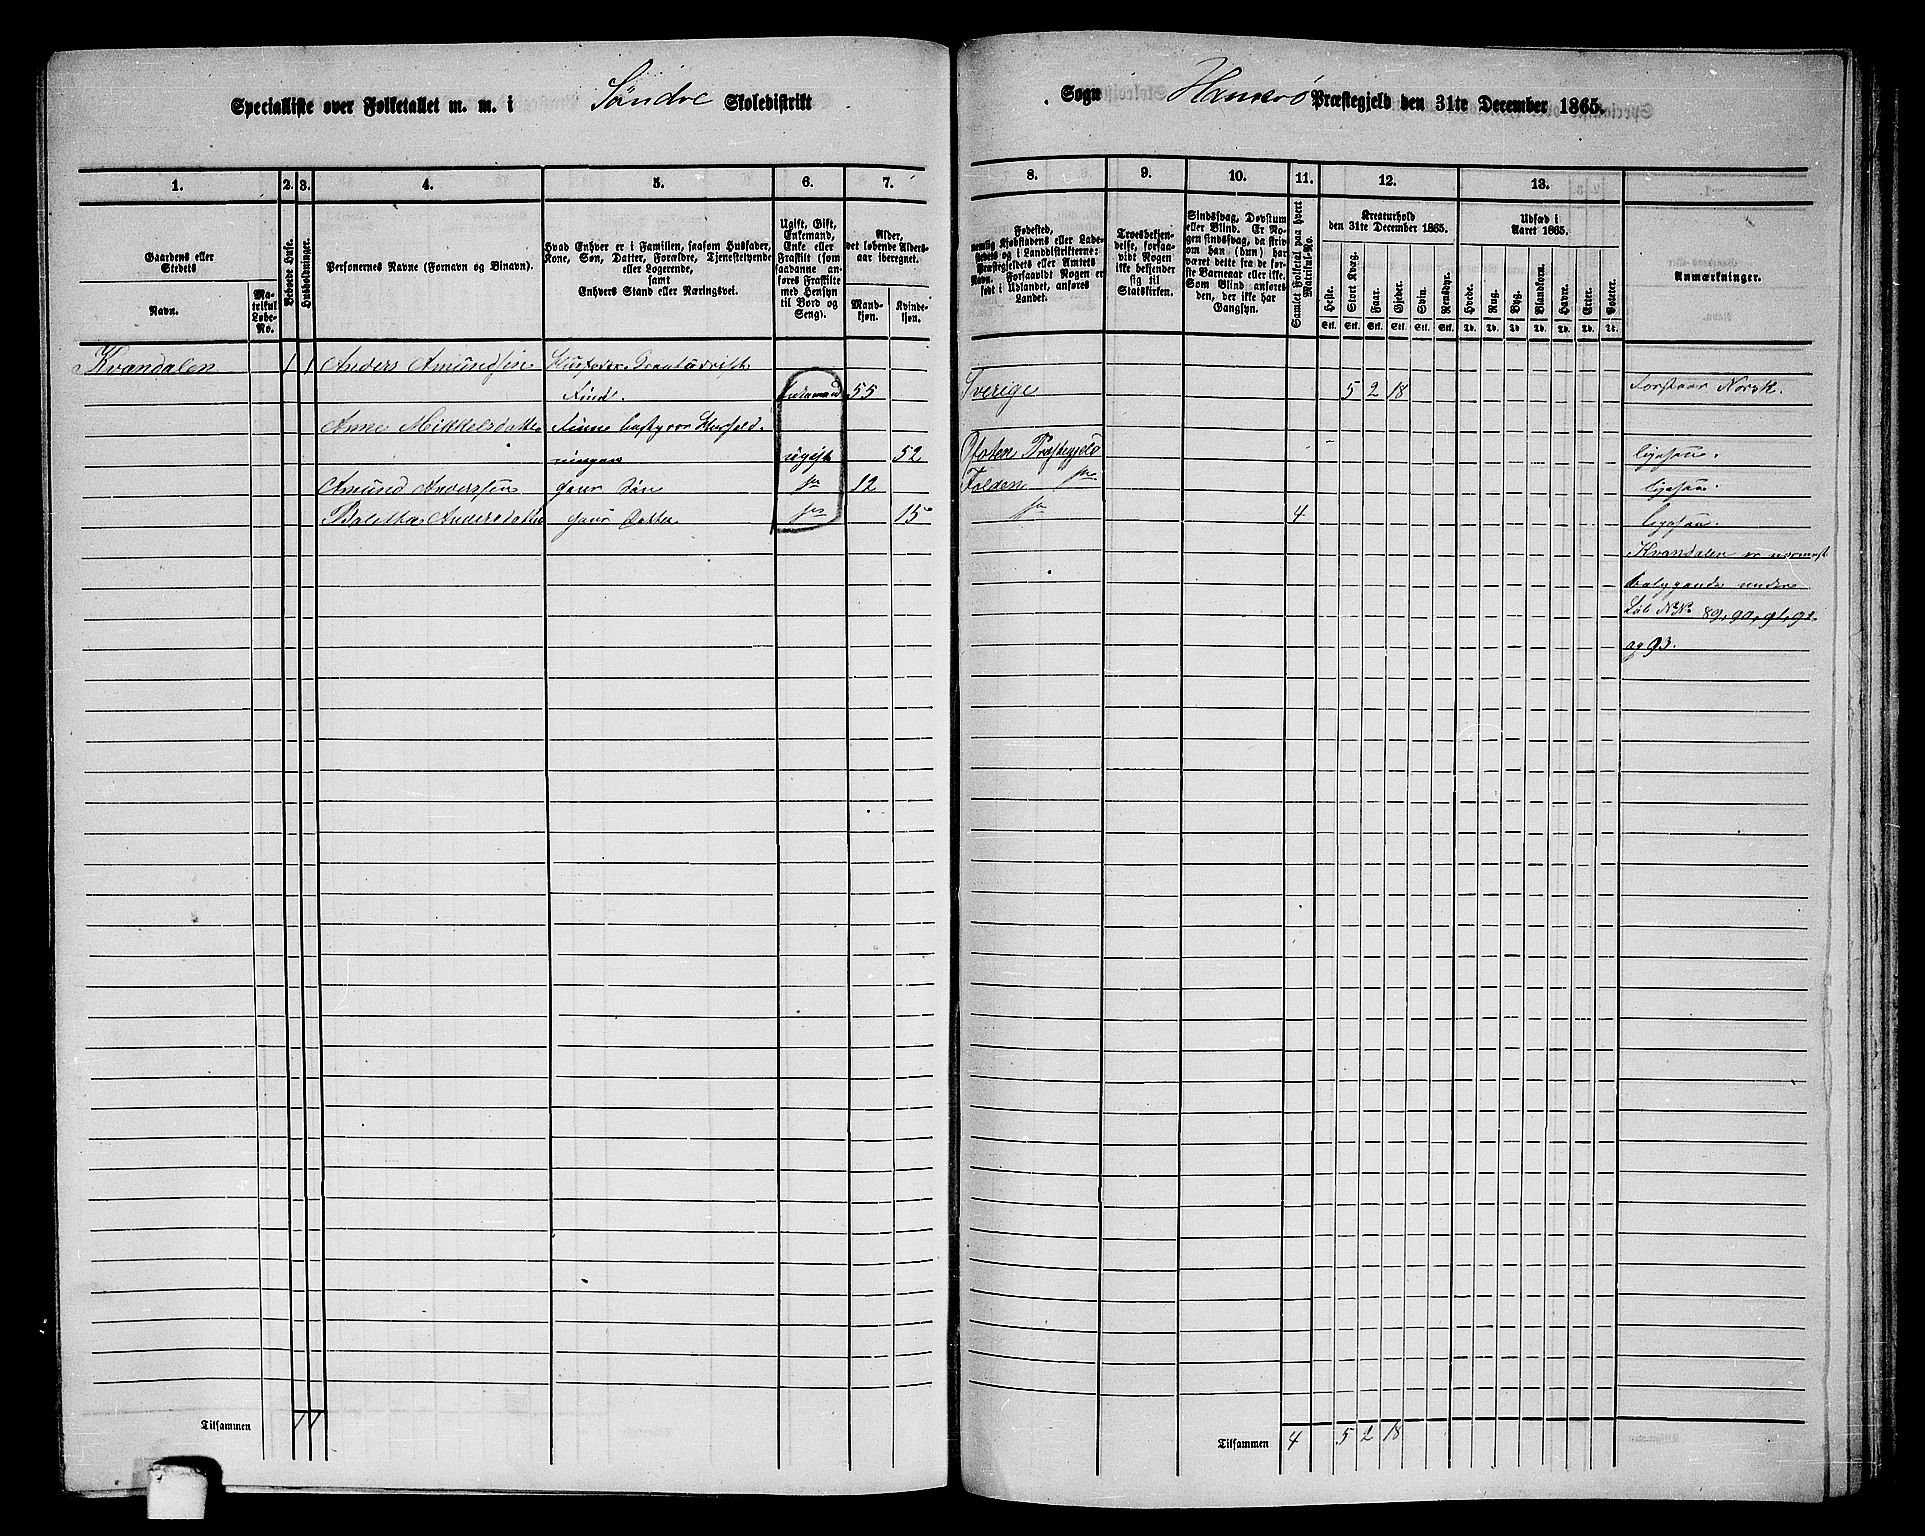 Specialliste over Folketallet m. m. i Söndre Skoledistrikt
Sogn Hamerø Præstegjeld den 31te December 1865.
1. 2. 3. 4. 5. 6. 7. 8. 9. 10. 11. 12. 13.
Gaardens eller Stedets
Navn.
Matrikul Løbe-No.
Beboede Huse.
Husholdninger.
Personernes Navne (Fornavn og Binavn).
Hvad Enhver er i Familien, saasom Husfader,
Kone, Søn, Datter, Forældre, Tjenestetyende
eller Logerende,
samt
Enhvers Stand eller Næringsvei.
Ugift, Gift,
Enkemand,
Enke eller
Fraskilt (som
saadanne an-
føres Fraskilte
med Hensyn
til Bord og
Seng).
Alder,
det løbende Alders-
aar iberegnet.
Mand-
kjøn.
Kvinde-
kjøn.
Fødested,
nemlig Kjøbstadens eller Lade-
stedets og i Landdistrikterne:
Præstegjeldets eller Amtets
Navn. Forsaavidt Nogen er
født i Udlandet, anføres
Landet.
Troesbekjen-
delse, forsaa-
vidt Nogen
ikke bekjender
sig til
Statskirken.
Sindssvag, Døvstum
eller Blind. Er No-
gen sindssvag, da skriv
om han (hun) har
været dette fra de før-
ste Barneaar eller ikke.
Som Blind anføres
den, der ikke har
Gangsyn.
Samlet Folketal paa hvert
Matrikul-No.
Kreaturhold
den 31te December 1865.
Heste. Stort Kvæg. Faar. Gjeder. Svin. Rensdyr.
Stk. Stk. Stk. Stk. Stk. Stk.
Udsæd i
Aaret 1865.
Hvede. Rug. Byg. Blandkorn. Havre. Erter. Poteter.
Td. Td. Td. Td. Td. Td. Td.
Anmærkninger.
Kvandalen 1 1 Anders Amundsen Husfader
Find. Enkemand 55 Sverige 5 2 18 Forstaar Norsk.
Anne Mikkelsdatter Finne bestyrer Hushold-
ningen ugift 52 Ofoten Præstegjeld ligesaa.
Amund Anderssen hans Søn 12 Folden ligesaa.
Andersdatter hans Datter 15 4 ligesaa.
Kvandalen er nærmest
beliggende under
Löb No No 89, 90, 91, 92
og 93.
Tilsammen 1 1
Tilsammen 4 5 2 18